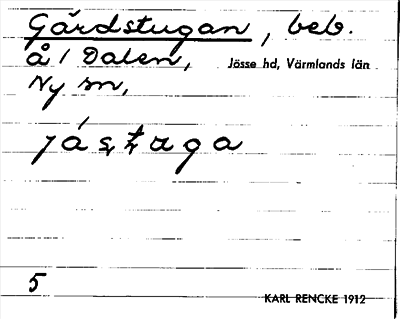 Gårdstugan, beb.
å/Dalen, Jösse hd, Värmlands län
Ny sn,
5
KARL RENCKE 1912